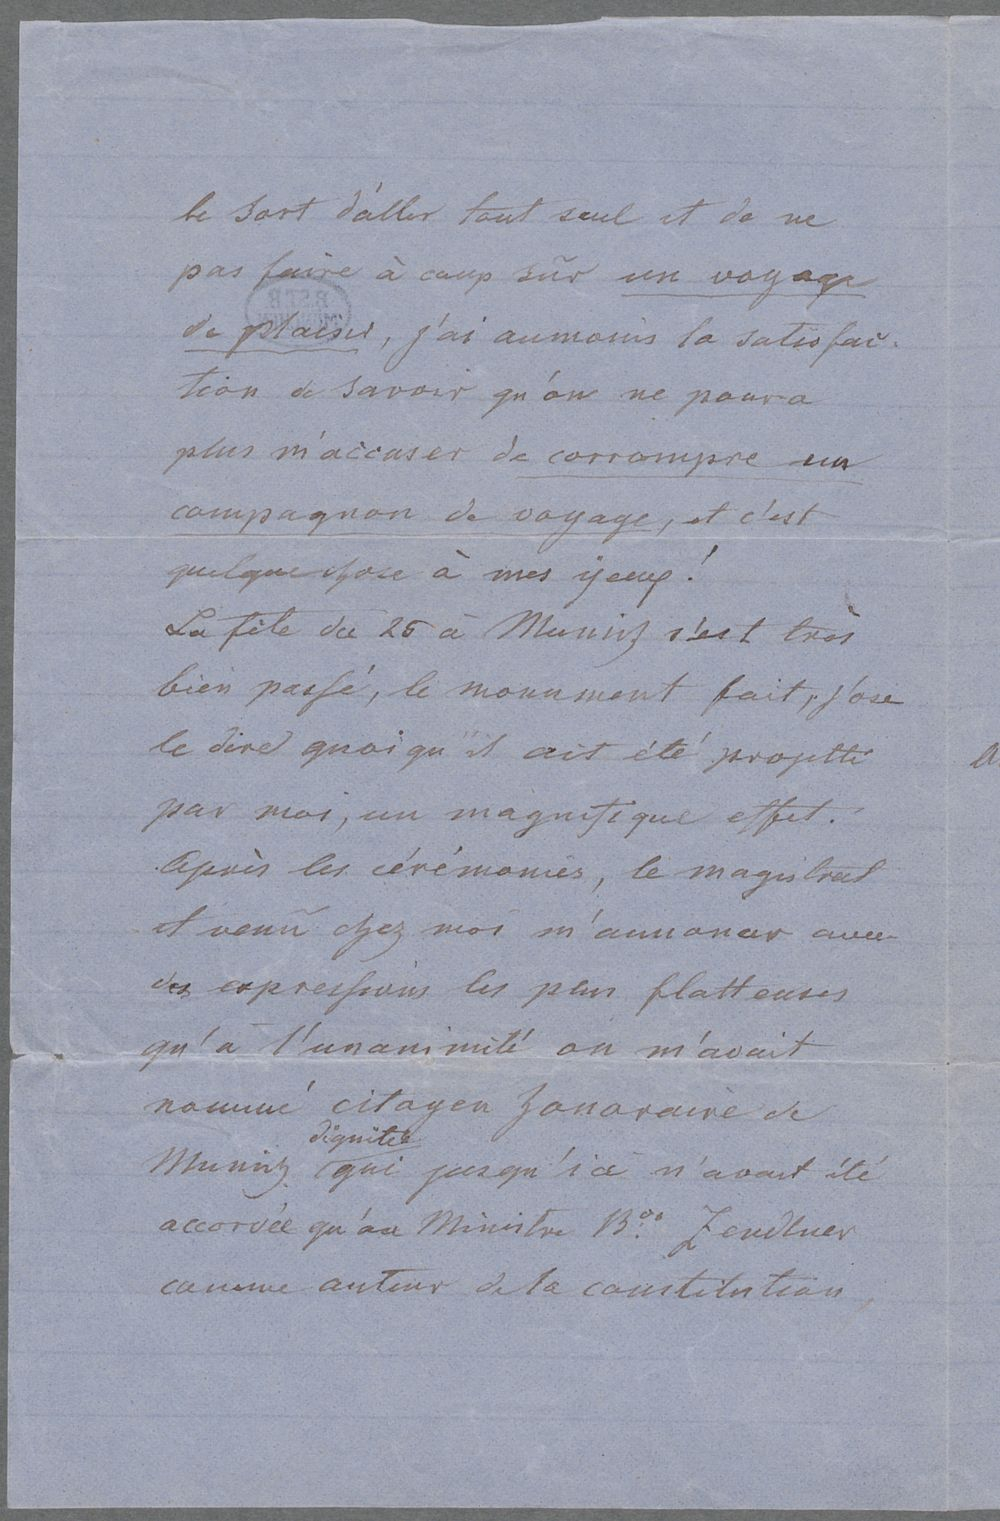 le sort d'aller tout seul et de ne
pas faire à coup sûr un voyage
de plaisir, j'ai aumoins la satisfac-
tion de savoir qu'on ne poura
plus m'accuser de corrompre un
compagnon de voyage, et c'est
quelque chose à mes yeux!
La fête du 25 à Munich s'est très
bien passé, le monument fait, j'ose
le dire quoiqu'il ait été projetté
par moi, un magnifique effet.
Après les cérémonies, le magistrat
et venu chez moi m'annoncer avec
des expressions les plus flatteuses
qu'à l'unanimité on m'avait
nommé citoyen honoraire de
dignitée
Munich qui jusqu'ici n'avait été
accordée qu'au Ministre B:on Zendtner
comme auteur de la constitution,